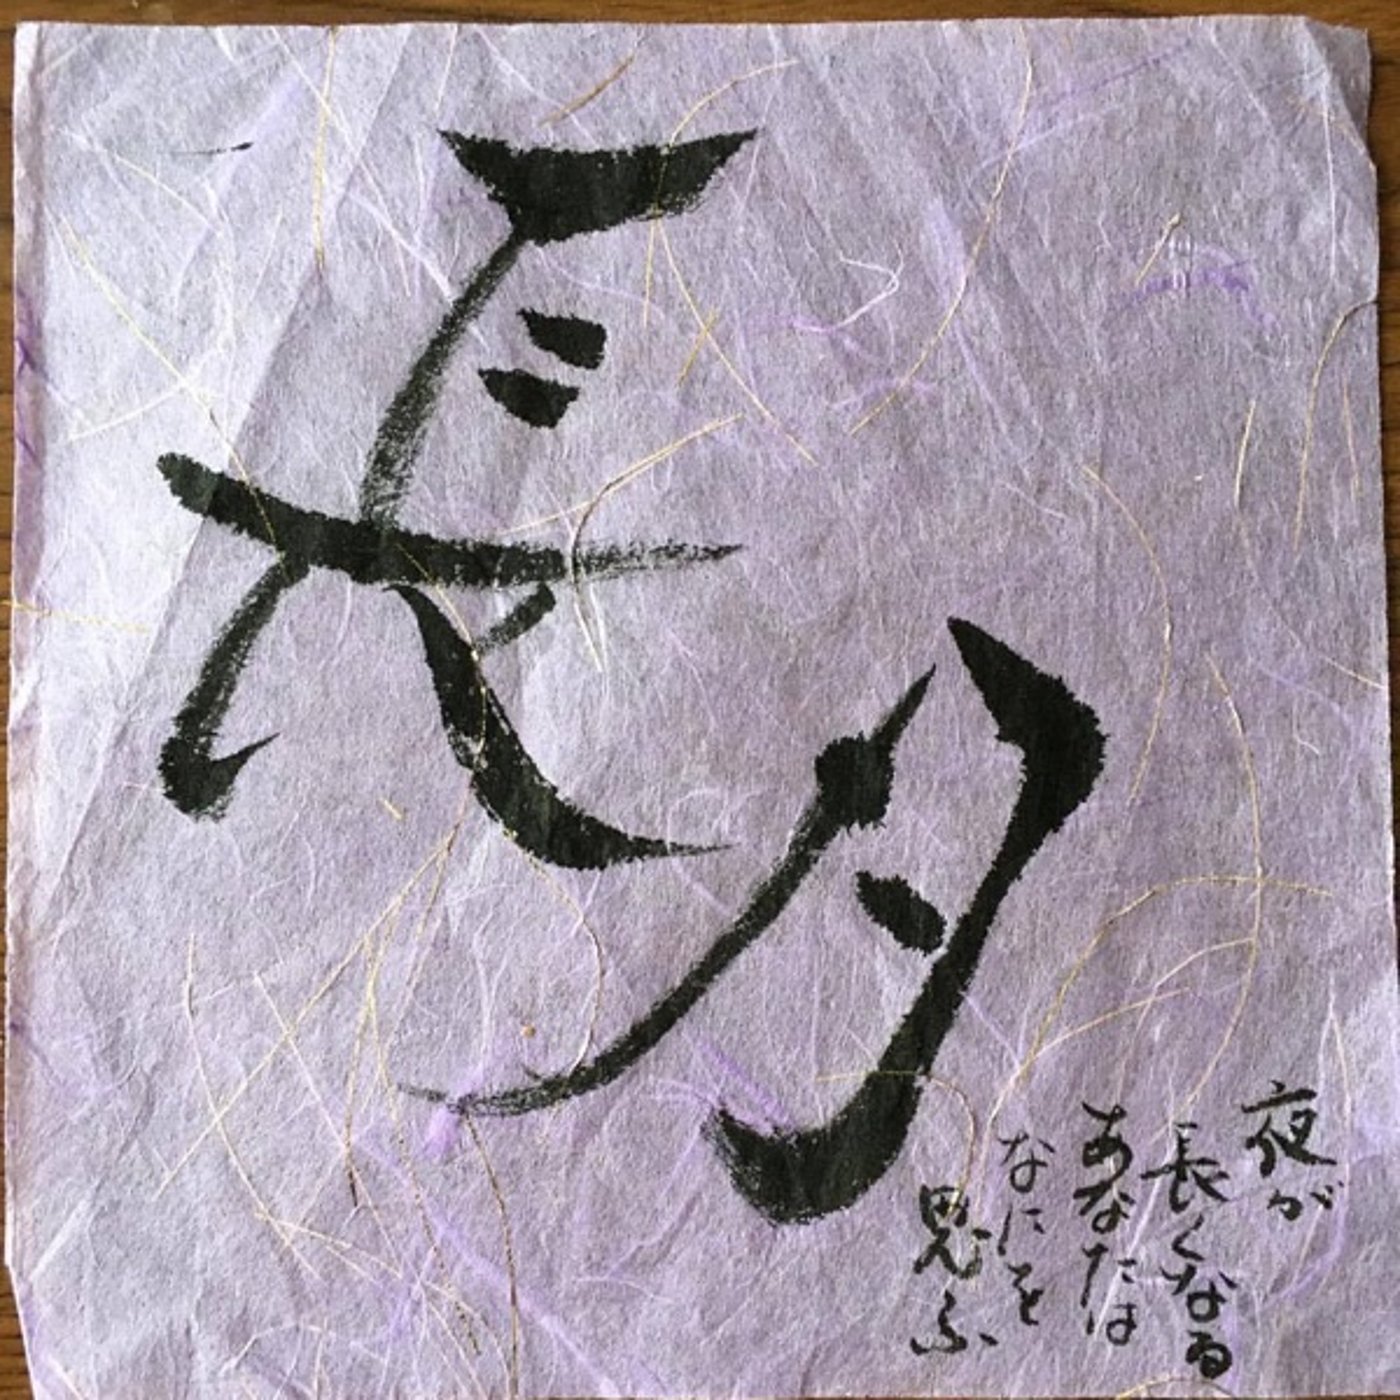 長月
夜が
長くなる
あなたは
なにを
思ふ